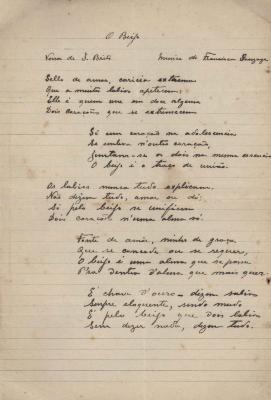 O Beijo
Versos de J. Brito Musica de Francisca Gonzaga
Sello de amor, caricia extrema
Que a muitos labios apetecem;
Elle é quem une em doce algema
Dois corações que se extremecem
Só um coração na adolescencia
Se enleva n'outro coração,
Juntam-se os dois na mesma essencia
O beijo é o traço de união.
Os labios nunca tudo explicam,
Não dizem tudo, amor ou dó;
Só pelo beijo se unificam
Dois corações n'uma alma só.
Fonte de amor, ninho de graça,
Que se conceda ou se requer,
O beijo é uma alma que se passa
P'ra dentro d'alma que mais quer.
É chave d'ouro - dizem sabios
Sempre eloquente, sendo mudo
É pelo beijo que dois labios
Sem dizer nada, dizem tudo.